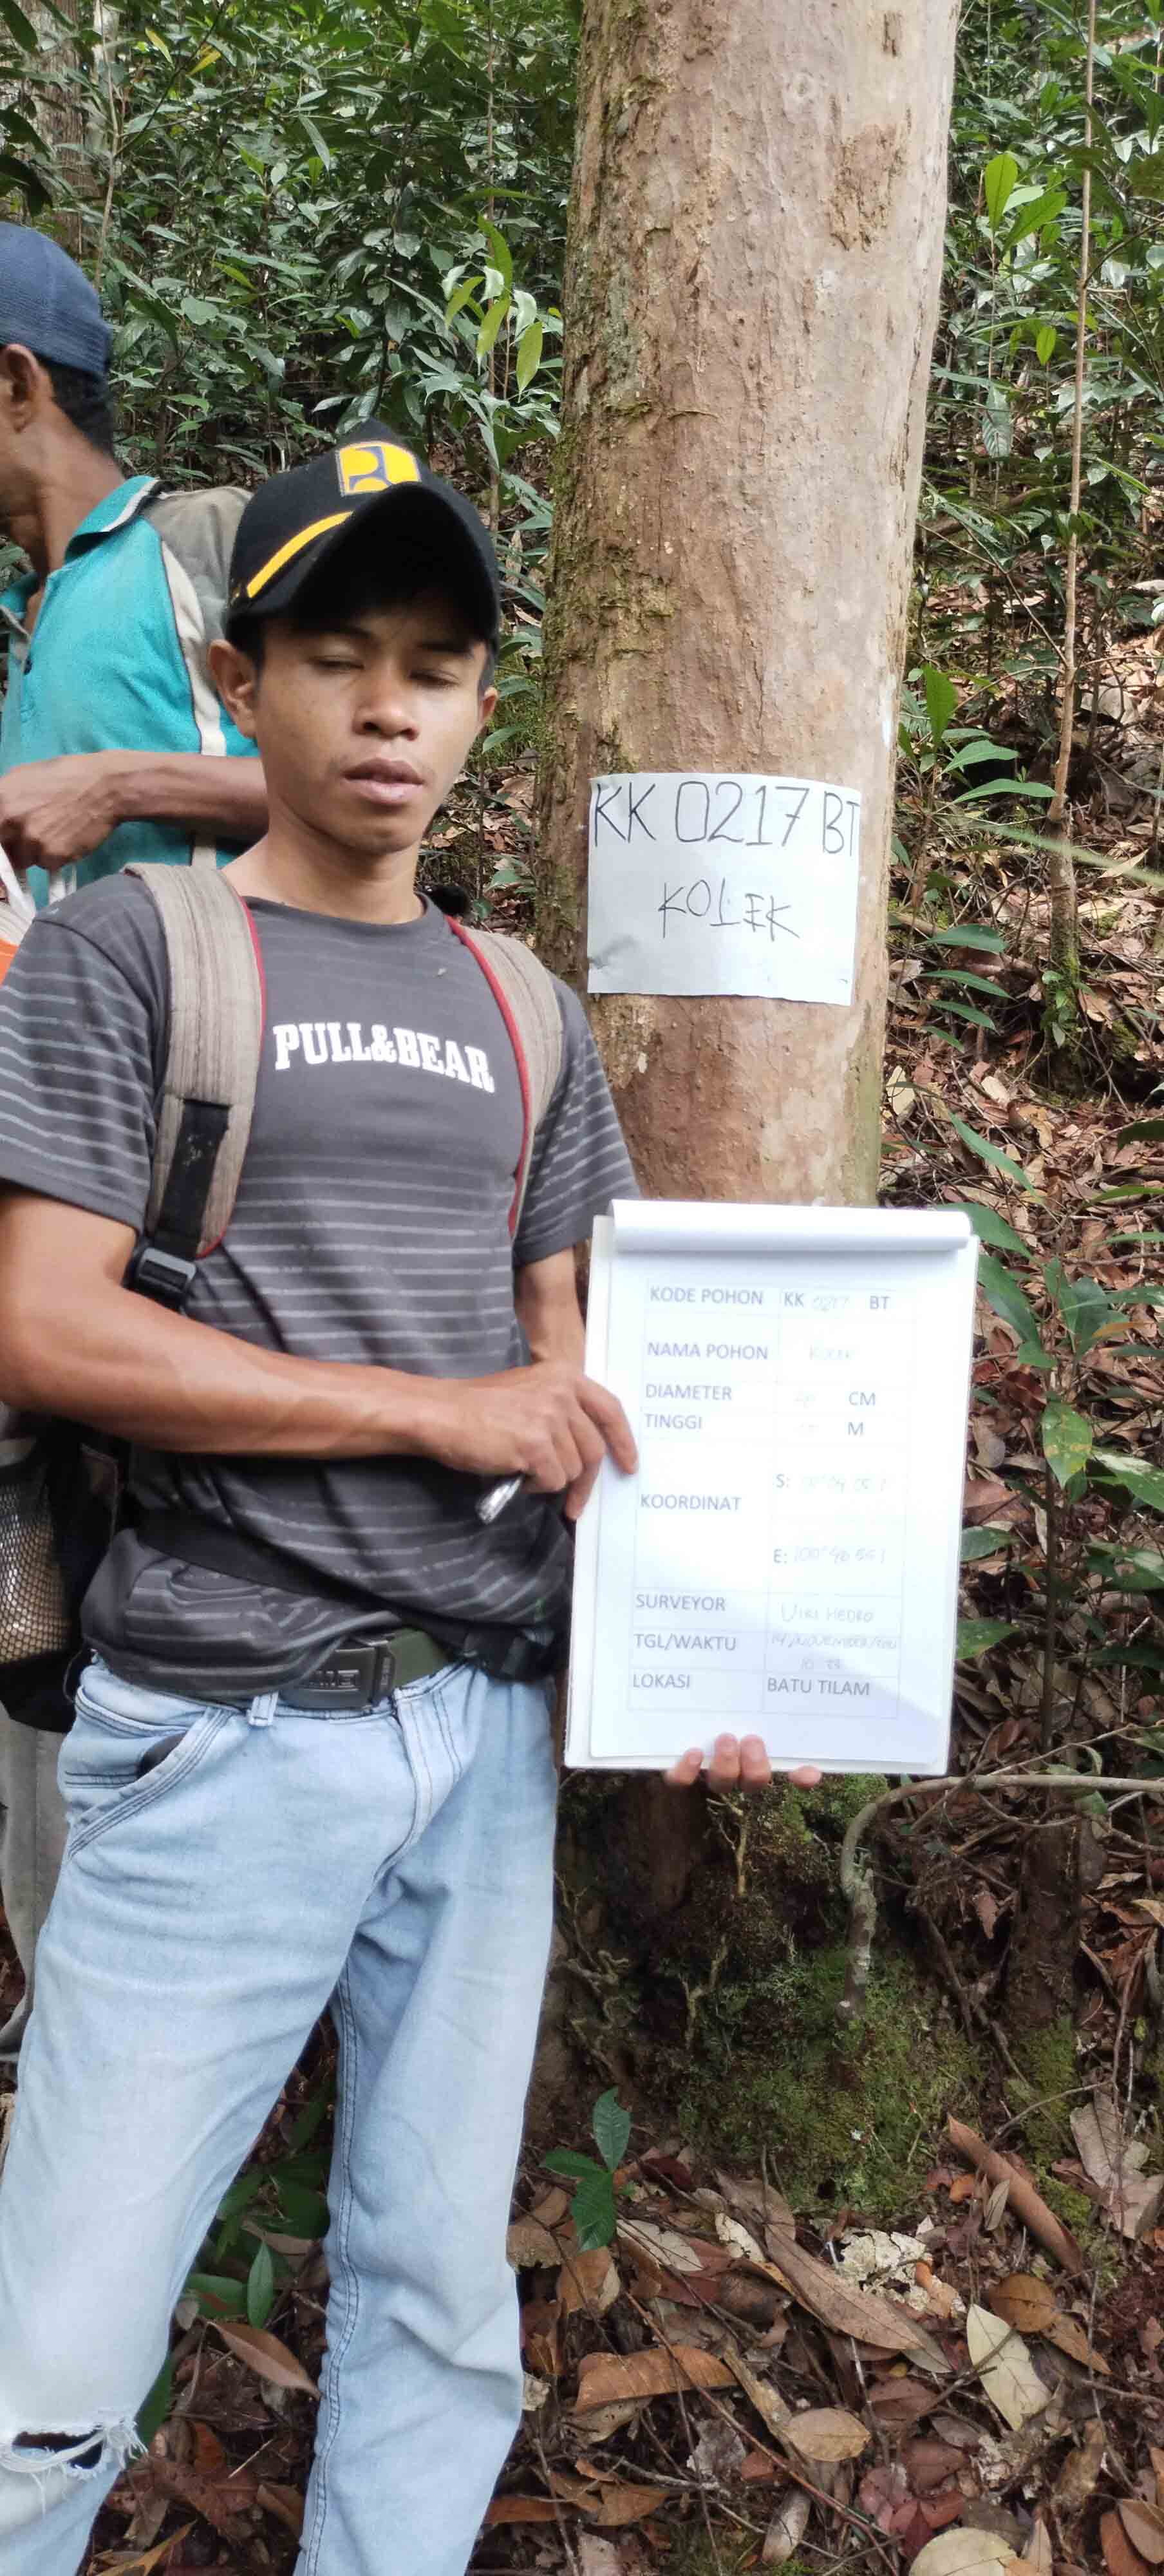 KK 0217 BT
KOLEK
PULL&BEAR
KODE POHON KK 0217 BT
NAMA POHON KOLEK
DIAMETER CM
TINGGI M
KOORDINAT
S:
E:
SURVEYOR
TGL/WAKTU
LOKASI BATU TILAM